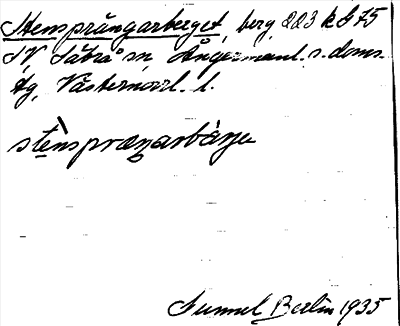 Stensprångarberget, berg 223 k G 75
S.V. Säbrå sn, Ångermanl. s. doms.
tg, Västernorrl. l.
stènspræŋarbàrje
Gunnel Berlin 1935